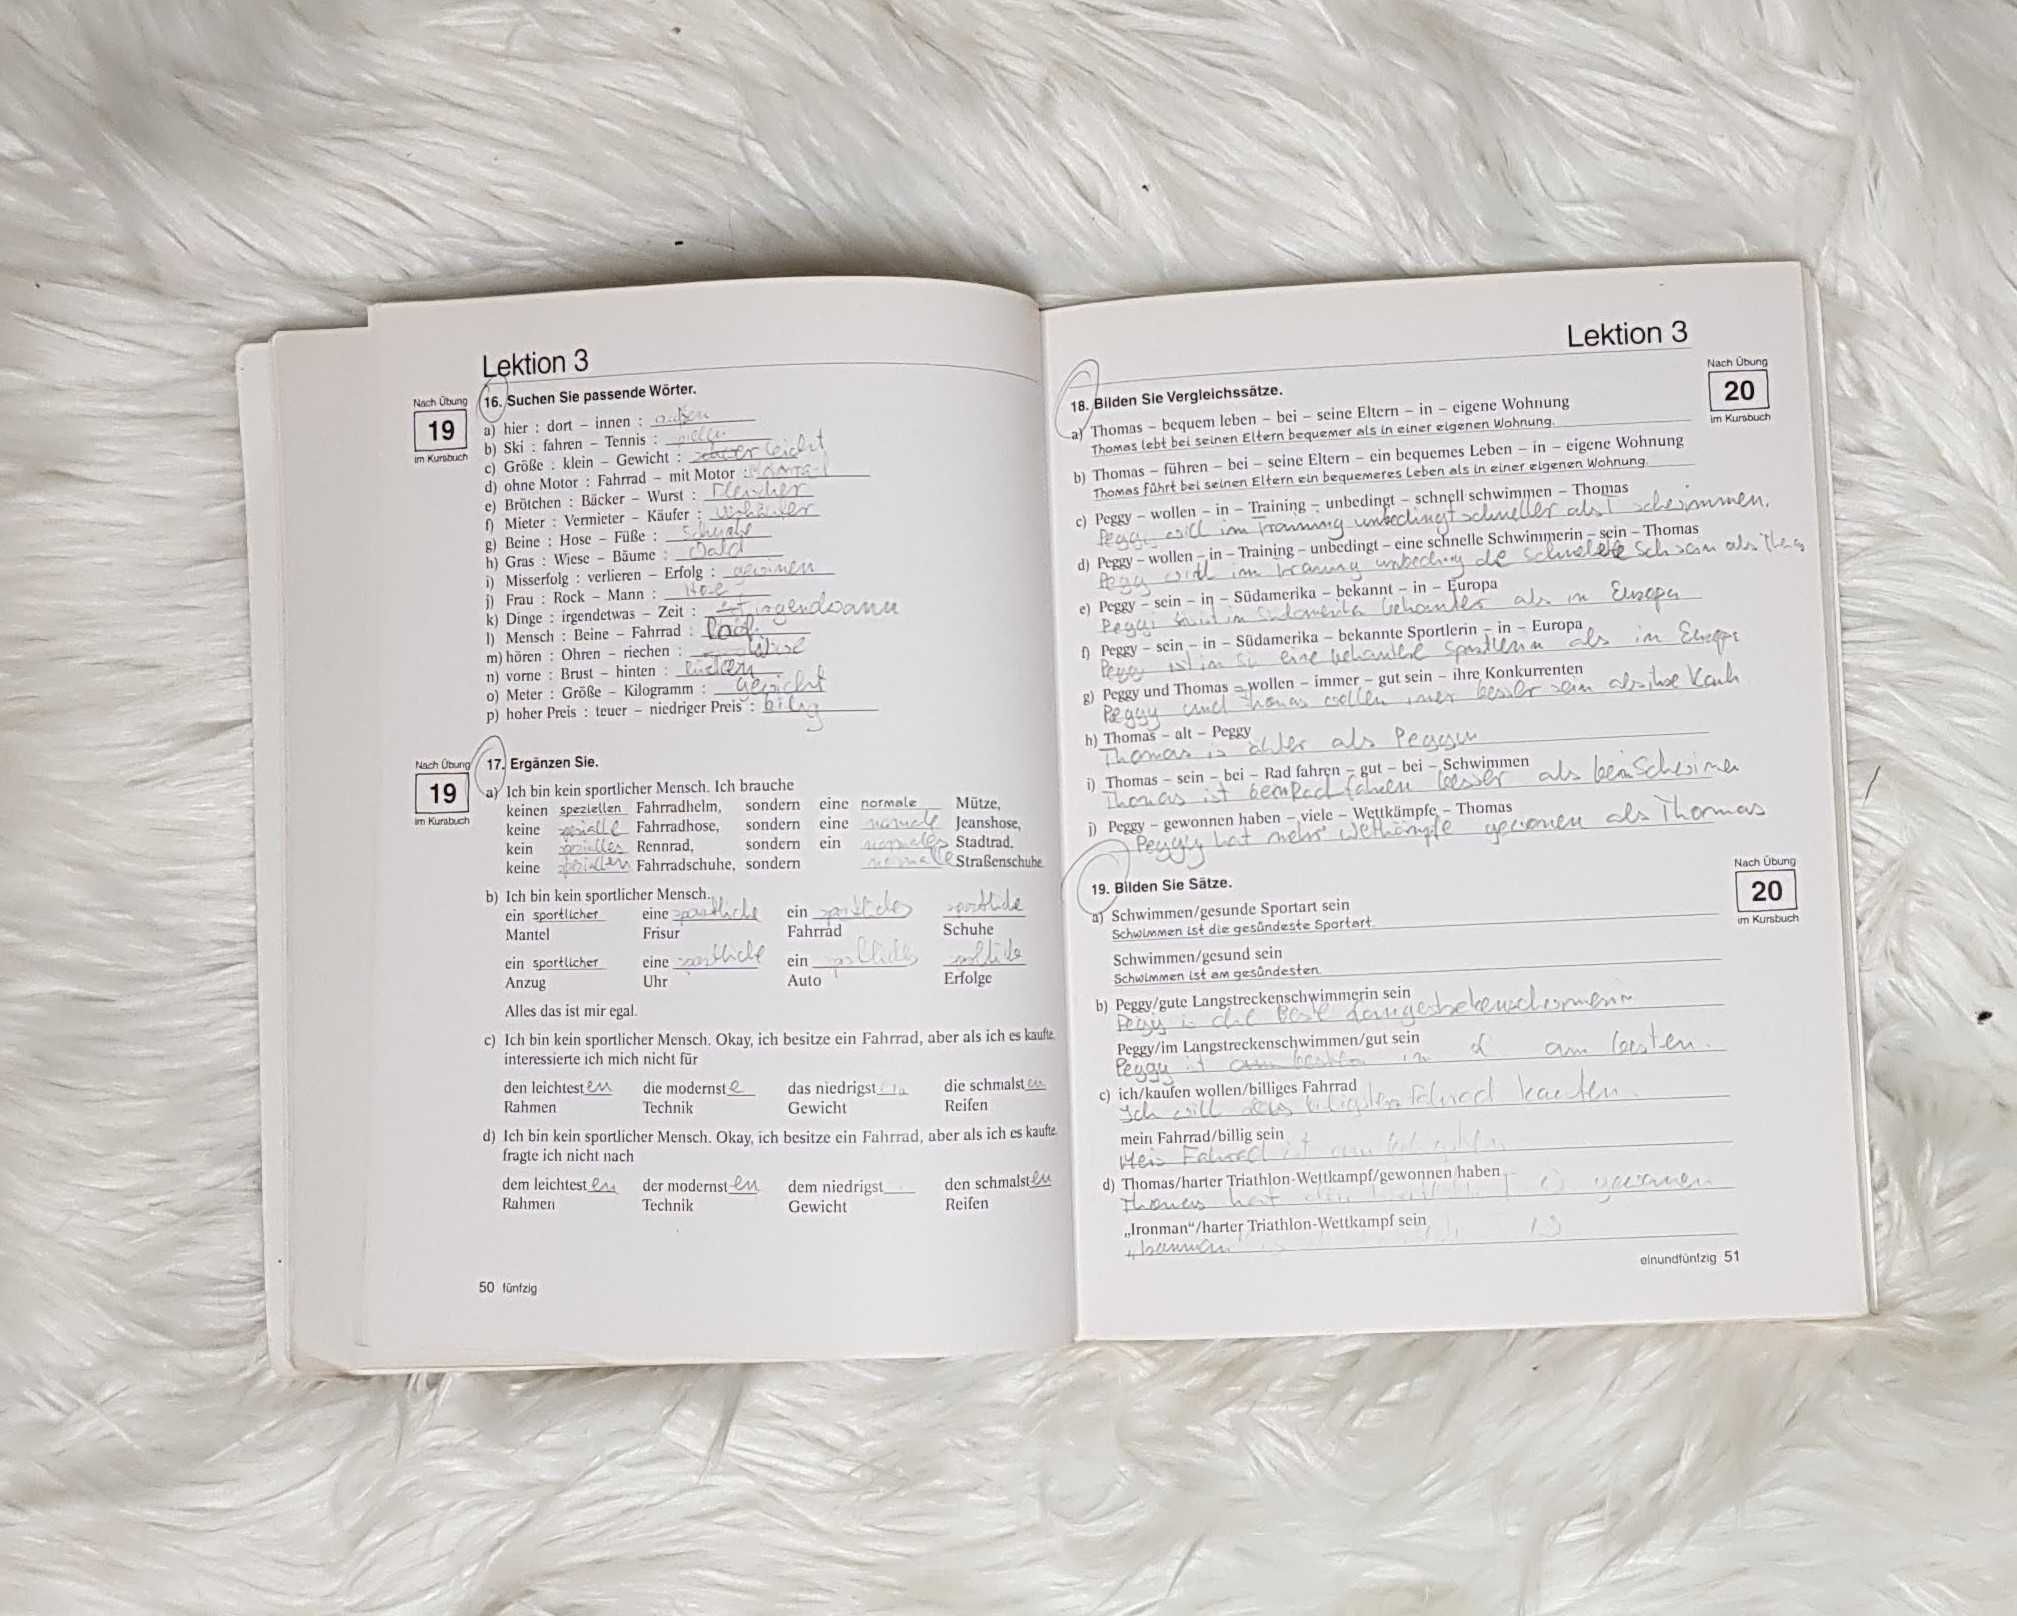 Lektion 3
Nach Übung
19
im Kursbuch
16. Suchen Sie passende Wörter.
a) hier : dort – innen : außen
b) Ski : fahren – Tennis :
c) Größe : klein – Gewicht : leicht
d) ohne Motor : Fahrrad – mit Motor :
e) Brötchen : Bäcker – Wurst : Fleischer
f) Mieter : Vermieter – Käufer : Verkäufer
g) Beine : Hose – Füße : Schuhe
h) Gras : Wiese – Bäume : Wald
i) Misserfolg : verlieren – Erfolg : gewinnen
j) Frau : Rock – Mann : Hose
k) Dinge : irgendetwas – Zeit : irgendwann
l) Mensch : Beine – Fahrrad : Rad
m) hören : Ohren – riechen :
n) vorne : Brust – hinten : Rücken
o) Meter : Größe – Kilogramm : Gewicht
p) hoher Preis : teuer – niedriger Preis : billig
Nach Übung
19
im Kursbuch
17. Ergänzen Sie.
a) Ich bin kein sportlicher Mensch. Ich brauche
keinen speziellen Fahrradhelm, sondern eine normale Mütze,
keine spezielle Fahrradhose, sondern eine normale Jeanshose,
kein spezielles Rennrad, sondern ein normales Stadtrad,
keine speziellen Fahrradschuhe, sondern normale Straßenschuhe
b) Ich bin kein sportlicher Mensch.
ein sportlicher eine sportliche ein sportliches sportliche
Mantel Frisur Fahrrad Schuhe
ein sportlicher eine sportliche ein sportliches sportliche
Anzug Uhr Auto Erfolge
Alles das ist mir egal.
c) Ich bin kein sportlicher Mensch. Okay, ich besitze ein Fahrrad, aber als ich es kaufte,
interessierte ich mich nicht für
den leichtesten die modernste das niedrigst die schmalsten
Rahmen Technik Gewicht Reifen
d) Ich bin kein sportlicher Mensch. Okay, ich besitze ein Fahrrad, aber als ich es kaufte,
fragte ich nicht nach
dem leichtesten der modernsten dem niedrigst den schmalsten
Rahmen Technik Gewicht Reifen
50 fünfzig
Lektion 3
Nach Übung
20
im Kursbuch
18. Bilden Sie Vergleichssätze.
a) Thomas – bequem leben – bei – seine Eltern – in – eigene Wohnung
Thomas lebt bei seinen Eltern bequemer als in einer eigenen Wohnung.
b) Thomas – führen – bei – seine Eltern – ein bequemes Leben – in – eigene Wohnung
Thomas führt bei seinen Eltern ein bequemeres Leben als in einer eigenen Wohnung.
c) Peggy – wollen – in – Training – unbedingt – schnell schwimmen – Thomas
Peggy will im Training unbedingt schneller als T
d) Peggy – wollen – in – Training – unbedingt – eine schnelle Schwimmerin – sein – Thomas
Peggy will im als
e) Peggy – sein – in – Südamerika – bekannt – in – Europa
Peggy in als in Europa
f) Peggy – sein – in – Südamerika – bekannte Sportlerin – in – Europa
Peggy ist in eine Sportlerin als in Europa
g) Peggy und Thomas – wollen – immer – gut sein – ihre Konkurrenten
Peggy und Thomas wollen besser sein als ihre
h) Thomas – alt – Peggy
Thomas is als
i) Thomas – sein – bei – Rad fahren – gut – bei – Schwimmen
Thomas ist beim Rad fahren besser als beim
j) Peggy – gewonnen haben – viele – Wettkämpfe – Thomas
Peggy hat mehr als Thomas
Nach Übung
20
im Kursbuch
19. Bilden Sie Sätze.
a) Schwimmen/gesunde Sportart sein
Schwimmen ist die gesündeste Sportart.
Schwimmen/gesund sein
Schwimmen ist am gesündesten.
b) Peggy/gute Langstreckenschwimmerin sein
Peggy is die beste
Peggy/im Langstreckenschwimmen/gut sein
Peggy ist im am besten.
c) ich/kaufen wollen/billiges Fahrrad
Ich will das kaufen.
mein Fahrrad/billig sein
Mein Fahrrad ist am
d) Thomas/harter Triathlon-Wettkampf/gewonnen haben
Thomas hat den
„Ironman“/harter Triathlon-Wettkampf sein
einundfünfzig 51